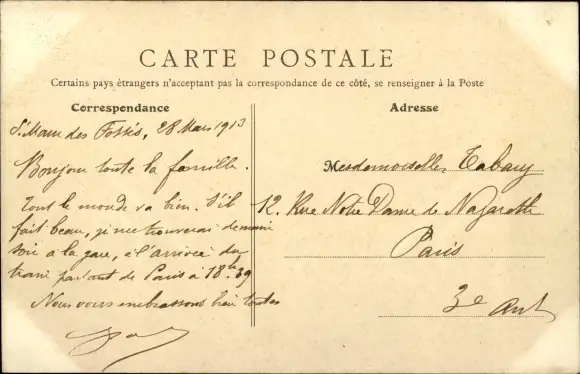 CARTE POSTALE
Certains pays étrangers n'acceptant pas la correspondance de ce côté, se renseigner à la Poste
Correspondance
Adresse
St Maur des Fossés, 28 Mars 1913
Bonjour toute la famille.
Tout le monde va bien. S'il
fait beau, je me trouverai demain
soir à la gare, à l'arrivée du
train partant de Paris à 18h 39
Nous vous embrassons bien toutes
Mesdemoiselles Tabary
12. Rue Notre Dame de Nazareth
Paris
3e Arrt